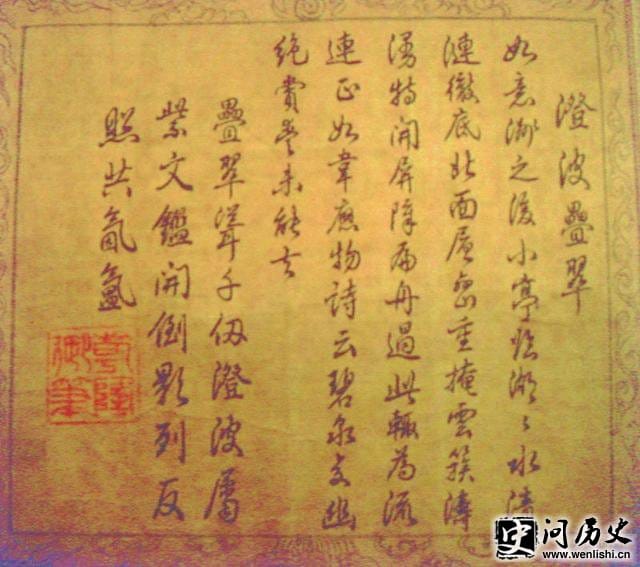 澄波疊翠
如意洲之後小亭臨湖〻水清
漣徹底北面層巒重掩雲簇濤
湧特開屏障扁舟過此輒為流
連正如韋應物詩云碧泉交幽
絕賞愛未能去
疊翠聳千仞澄波屬
紫文鑑開倒影列反
照共氤氳
乾隆
御筆
问历史
www.wenlishi.cn